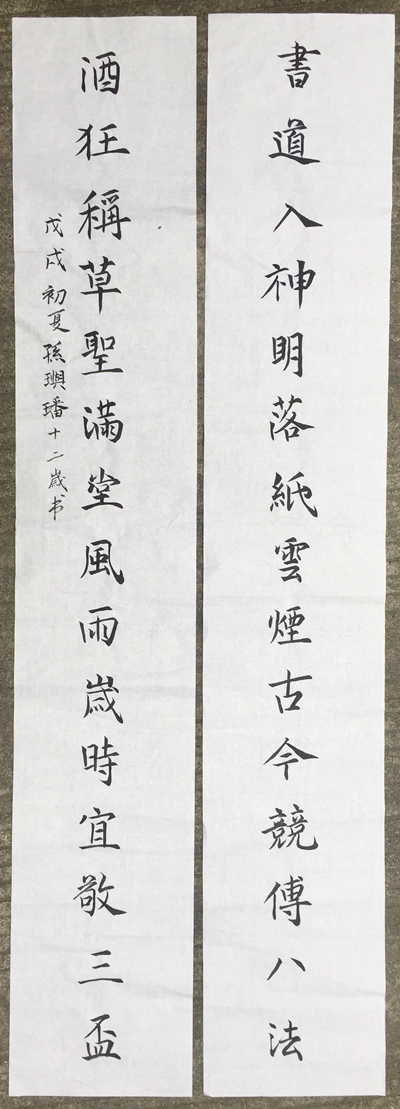 書道入神明落紙雲煙古今競傳八法
酒狂稱草聖滿堂風雨歲時宜敬三盃
戊戌初夏孫璵璠十二歲书